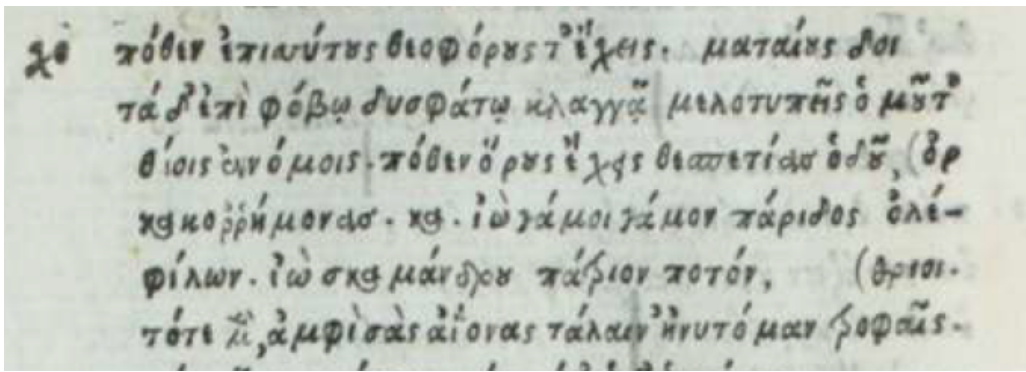 χο πόθεν ἐπισσύτους θεοφόρους τ' ἔχεις. ματαίους δύοι
τά δ' ἐπὶ φόβῳ δυσφάτῳ κλαγγᾷ μελοτυπεῖς ὁμοῦ τ' ὀ
θίοις ἐν νόμοις. πόθεν ὅρους ἔχεις θεσπεσίας ὁδοῦ, (ὀρ
κακορρήμονας. κα. ἰὼ γάμοι γάμον πάριδος ὀλέ-
φίλων. ἰὼ σκαμάνδρου πάτριον ποτόν, (θριοι.
τότε μὲν, ἀμφὶ σὰς ἀϊόνας τάλαιν' ἠνυτόμαν τροφαῖς.